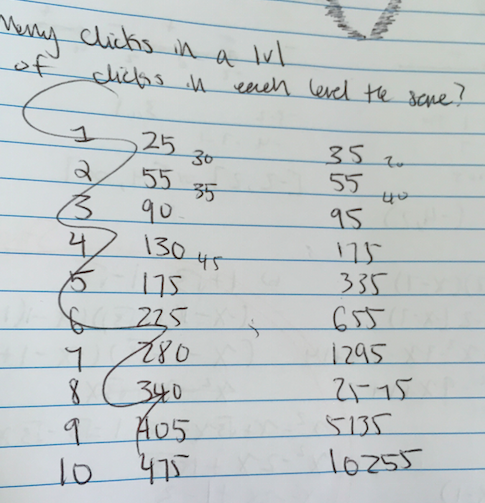 Many clicks in a lvl
of clicks in each level the same?
1 25 35
30 20
2 55 55
35 40
3 90 95
4 130 175
45
5 175 335
6 225 655
7 280 1295
8 340 2575
9 405 5135
10 475 10255